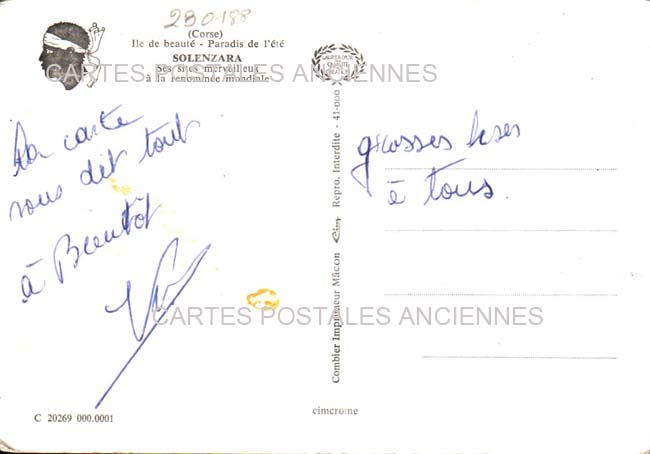 280188
(Corse)
Ile de beauté - Paradis de l'été
SOLENZARA
Ses sites merveilleux
à la renommée mondiale
CARTES POSTALES ANCIENNES
La carte
vous dit tout
à Bientôt
grosses bises
à tous.
Combier Imprimeur Mâcon Cim Repro. Interdite - 41-000
CARTES POSTALES ANCIENNES
C 20269 000.0001
cimcrome